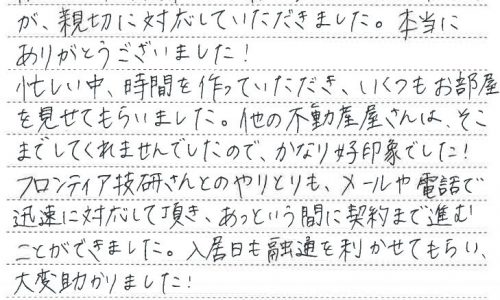 が、親切に対応していただきました。本当に
ありがとうございました!
忙しい中、時間を作っていただき、いくつもお部屋
を見せてもらいました。他の不動産屋さんは、そこ
までしてくれませんでしたので、かなり好印象でした!
フロンティア技研さんとのやりとりも、メールや電話で
迅速に対応して頂き、あっという間に契約まで進む
ことができました。入居日も融通を利かせてもらい、
大変助かりました!